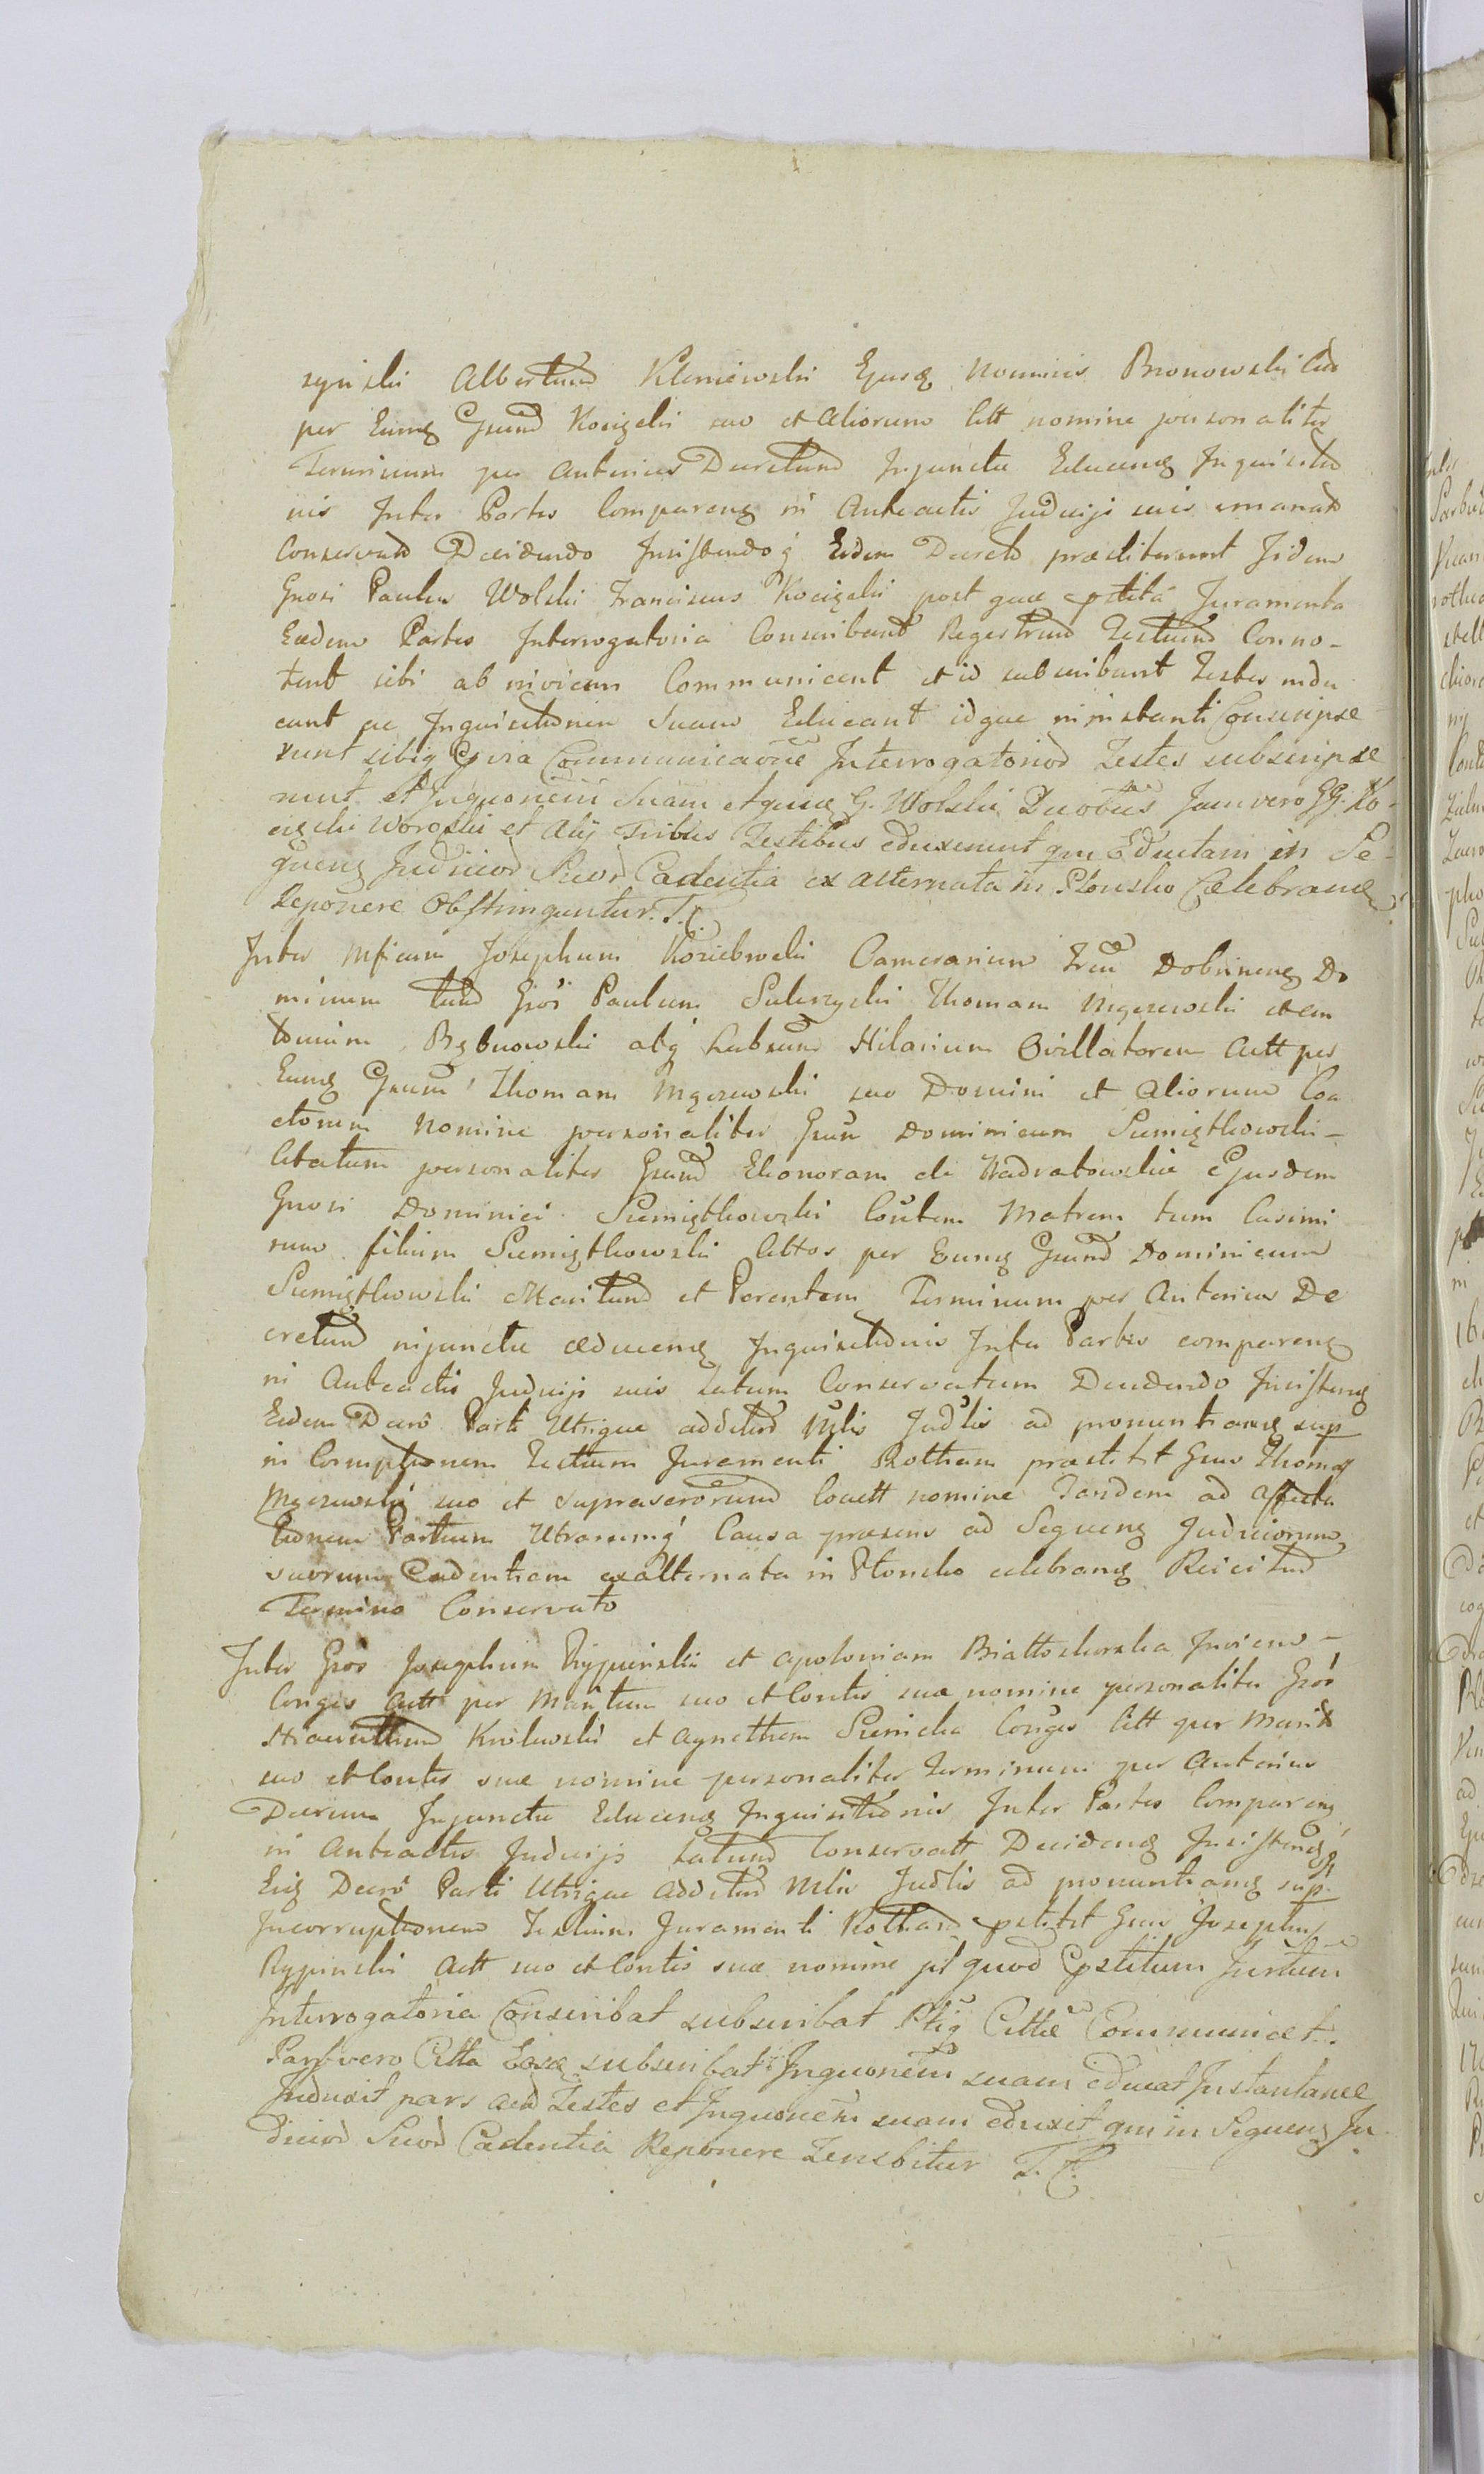 rynski Albertum Kleniewski Ejusq nominis Bronowski Citt
per Eumq Gsum Kocięcki suo et Aliorum Citt nomine personaliter
Terminum per Anterius Decretum Injunctae Educenq Inquisitio
nis Inter Partes Comparenq in Anteactis Judicijs suis emanato
Conservato Decidendo Insistendoq Eidem Decreto praestiterunt Jidem
Gnosi Paulus Wolski Franciscus Kocięcki post quae pstita Juramenta
Eaedem Partes Interrogatoria Conscribant Regestrum Testium Conno-
tent sibi ab invicem Communicent et id subscribant Testes indu
cant ac Inquisitionem Suam Educant idque in instanti Conscripse
runt sibiq via Communicatione Interrogatorior Testes subscripse
runt et Inquonem Suam utque G. Wolski Duobus Jam vero GG. Ko-
cięcki Woroski et Alij Tribus Testibus eduxerunt qm Eductam in Se-
quenq Judicior Suor Cadentia ex alternata in Płonsko Celebranq
Reponere Obstringuntur. T. C.
Inter Mficum Josephum Koziebrodzki Camerarium Trae Dobrinenq Do
minum tum Gsos Paulum Sulerzycki Thomam Mgozewski et An
tonium Bębnowski atq Labsum Hilarium Ovillatorem Actt per
Eumq Gsum Thomam Mgozewski suo Domini et Aliorum Coa
ctorum nomine personaliter Gsum Dominicum Siemiątkowski-
Citatum personaliter Gsam Eleonoram de Nadratowskie Ejusdem
Gnosi Dominici Siemiątkowski Contem Matrem tum Casimi
rum filium Siemiątkowski Cittos per Eumq Gsum Dominicum
Siemiątkowski Maritum et Parentem Terminum per Anterius De
cretum injunctae aeducenq Inquisitionis Inter Partes comparenq
in Anteactis Judicijs suis Latum Conservatum Decidendo Insistenq
Eidem Decro Parti Utrique additus Mlis Judlis ad pronuntianq sup
in Corruptionem Testium Juramenti Rotham praestitit Gsus Thomas
Mgozewski suo et suprascrorum Coactt nomine Tandem ad Affecta
tionem Partium Utrarumq Causa praesens ad Sequenq Judiciorum
suorum Cadentiam exalternata in Płonsko celebranq Reicitur
Termino Conservato
Inter Gsos Josephum Rypinski et Apoloniam Białłoskorska Invicem-
Conges Actt per Maritum suo et Contis suae nomine personaliter Gsos
Hiacinthum Krolewski et Agnethem Sienicka Conges Citt per Marit
suo et Contis suae nomine personaliter Terminum per Anterius
Decrum Injunctae Educenq Inquisitionis Inter Partes Comparenq
in Anteactis Judicijs Latum Conservatt Decidenq Insistendoq
Eiq Decro Parti Utrique additus Mlis Judlis ad pronuntianq sup
Incorruptionem Testium Juramenti Rotham pstitit Gsus Josephus
Rypinski Actt suo et Contis suae nomine pt quod pstitum Jurtum
Interrogatoria Conscribat subscribat Ptiq Cittae Communicet.
Pars vero Citta Eaq subscribat Inquonem suam educat Instantanee
Induxit pars act Testes et Inquonem suam eduxit qm in Sequenq Ju-
dicior Suor Cadentia Reponere Tenebitur T. C.